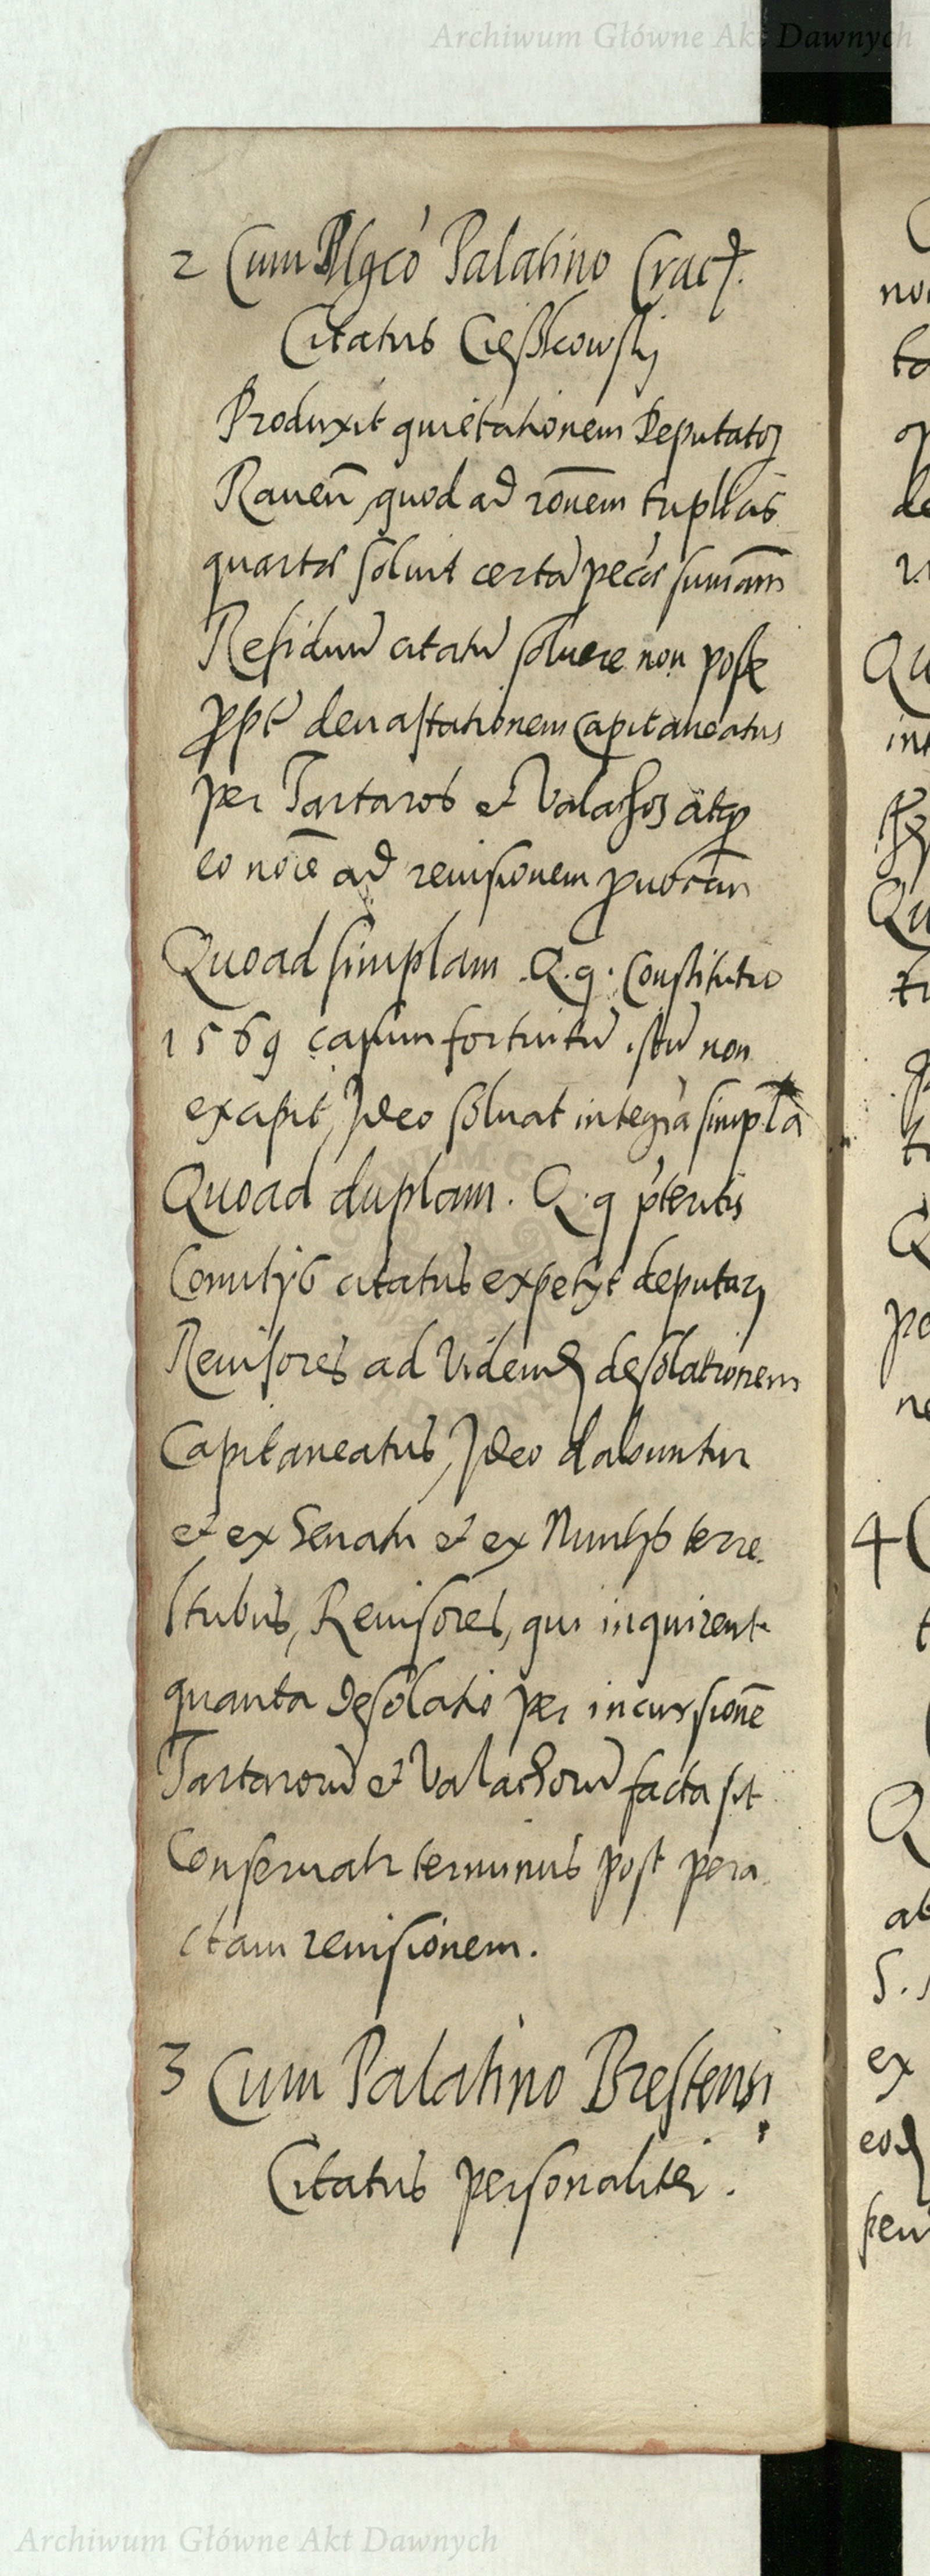 Archiwum Główne Akt Dawnych
2 Cum Mgco Palatino Crac.
Citatus Cießkowskj
Produxit quietationem Deputatoꝝ
Raueñ, quod ad rōnem triplicis
quartæ soluit certā pecæ sum̄am
Residuū citatū soluere non posse
ꝓpt deuastationem Capitaneatus
per Tartaros et Valachos atqꝫ
eo noīe ad reuisionem ꝓuocan
Quoad simplam Q.q. Constitutio
1569 casum fortuitū istū non
excipit, Ideo soluat integrā simplā
Quoad duplam. Q.q pteritis
Comitijs citatus expetijt deputarj
Reuisores ad Videnđ desolationem
Capitaneatus, Ideo dabuntur
et ex Senatu et ex Nuntijs terre
stribus, Reuisores, qui inquirent
quanta desolatio per incursionē
Tartarorū et Valachorū facta sit
Conseruatr terminus post pera
ctam reuisionem.
3 Cum Palatino Brestensi
Citatus personaliter.
no
ta
op
de
Qu
int
Qu
tu
Q
po
ne
4 C
t
Q
ab
S.
ex
eođ
peru
Archiwum Główne Akt Dawnych